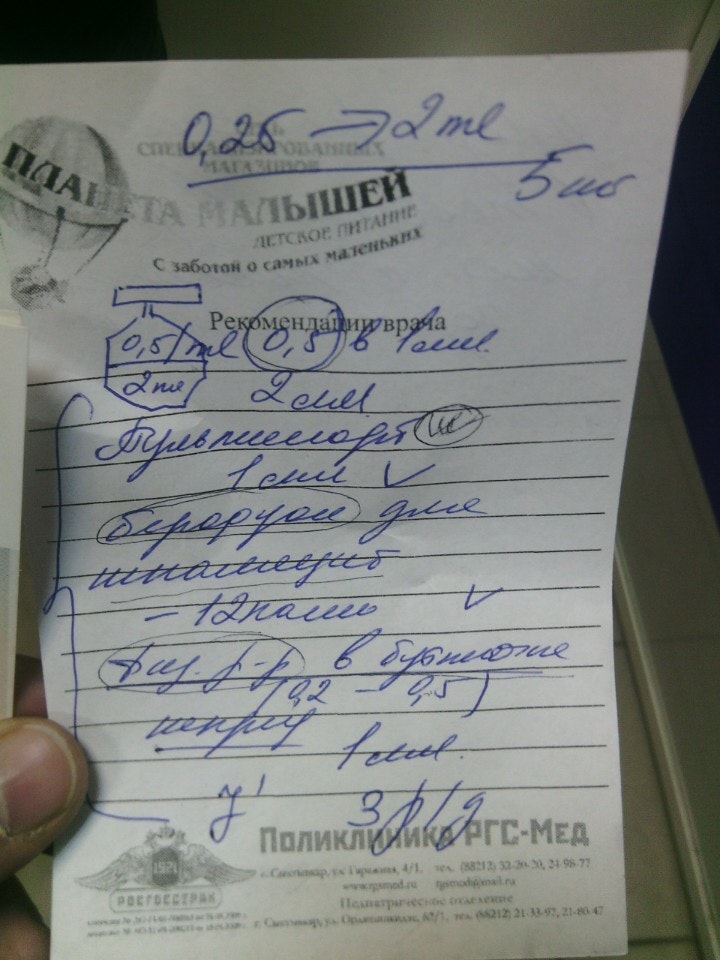 0,25 → 2 ml
СЕТЬ
СПЕЦИАЛИЗИРОВАННЫХ
МАГАЗИНОВ
5 шт
ПЛАНЕТА МАЛЫШЕЙ
ДЕТСКОЕ ПИТАНИЕ
С заботой о самых маленьких
Рекомендации врача
0,5/ml 0,5 в 1 мл.
2 ml 2 мл
Пульмикорт
1 мл ✓
беродуал для
ингаляций
– 12 капель ✓
физ. р-р в бутылке
(0,2 – 0,5)
1 мл.
3 р/д
Поликлиника РГС-Мед
1921
РОСГОССТРАХ
г. Сыктывкар, ул. Гаражная, 4/1, тел. (88212) 32-20-20, 24-98-77
www.rgsmed.ru rgsmed@mail.ru
Педиатрическое отделение
г. Сыктывкар, ул. Орджоникидзе, 62/1, тел. (88212) 21-33-97, 21-80-47